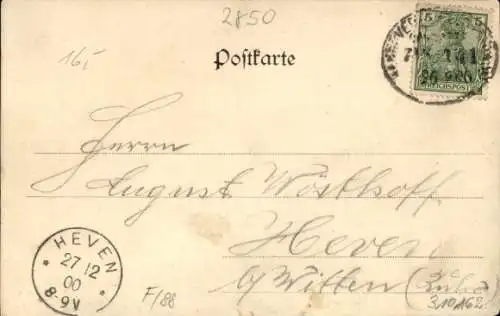 2850
16,-
Postkarte
5 5
REICHSPOST
Herrn
August Wösthoff
Heven
b/ Witten (Ruhr)
HEVEN
27 12
00
8-9V
F/88
3,10A62